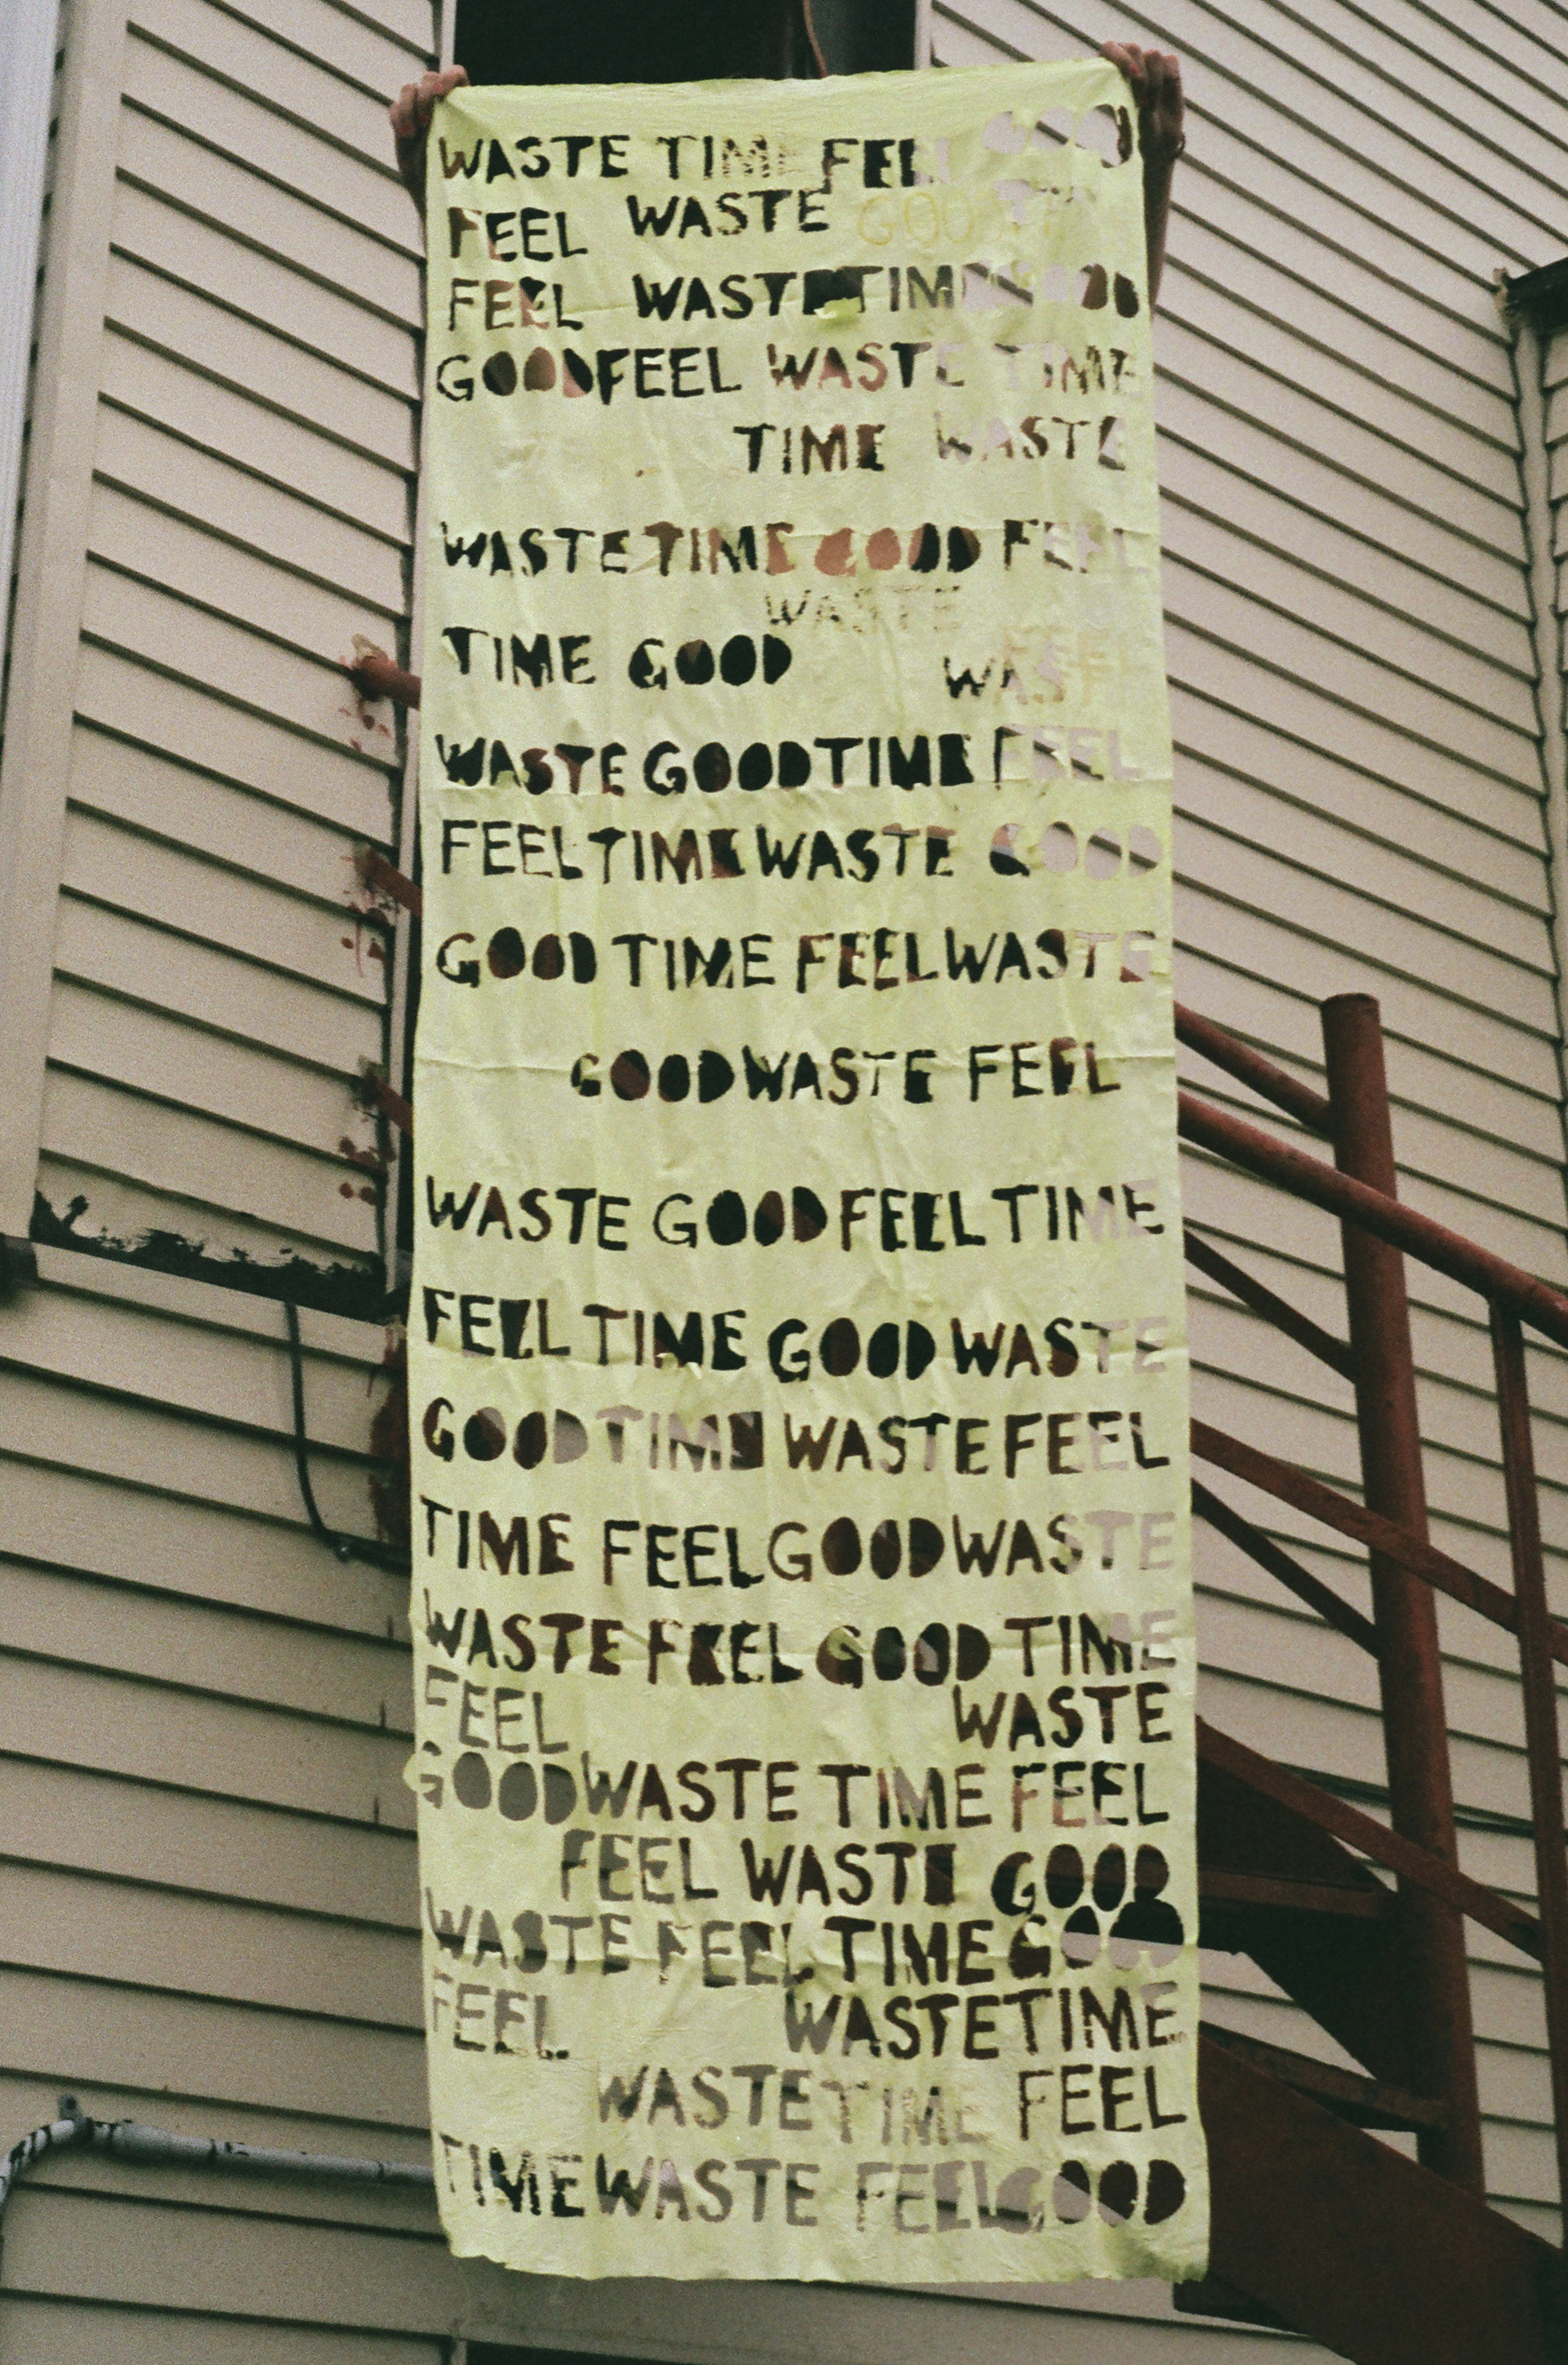 WASTE TIME FEEL GOOD
FEEL WASTE GOOD
FEEL WASTE TIME GOOD
GOOD FEEL WASTE TIME
TIME WASTE
WASTE TIME GOOD FEEL
WASTE
TIME GOOD WASTE FEEL
WASTE GOOD TIME FEEL
FEEL TIME WASTE GOOD
GOOD TIME FEEL WASTE
GOOD WASTE FEEL
WASTE GOOD FEEL TIME
FEEL TIME GOOD WASTE
GOOD TIME WASTE FEEL
TIME FEEL GOOD WASTE
WASTE FEEL GOOD TIME
FEEL WASTE
GOOD WASTE TIME FEEL
FEEL WASTE GOOD
WASTE FEEL TIME GOOD
FEEL WASTE TIME
WASTE TIME FEEL
TIME WASTE FEEL GOOD